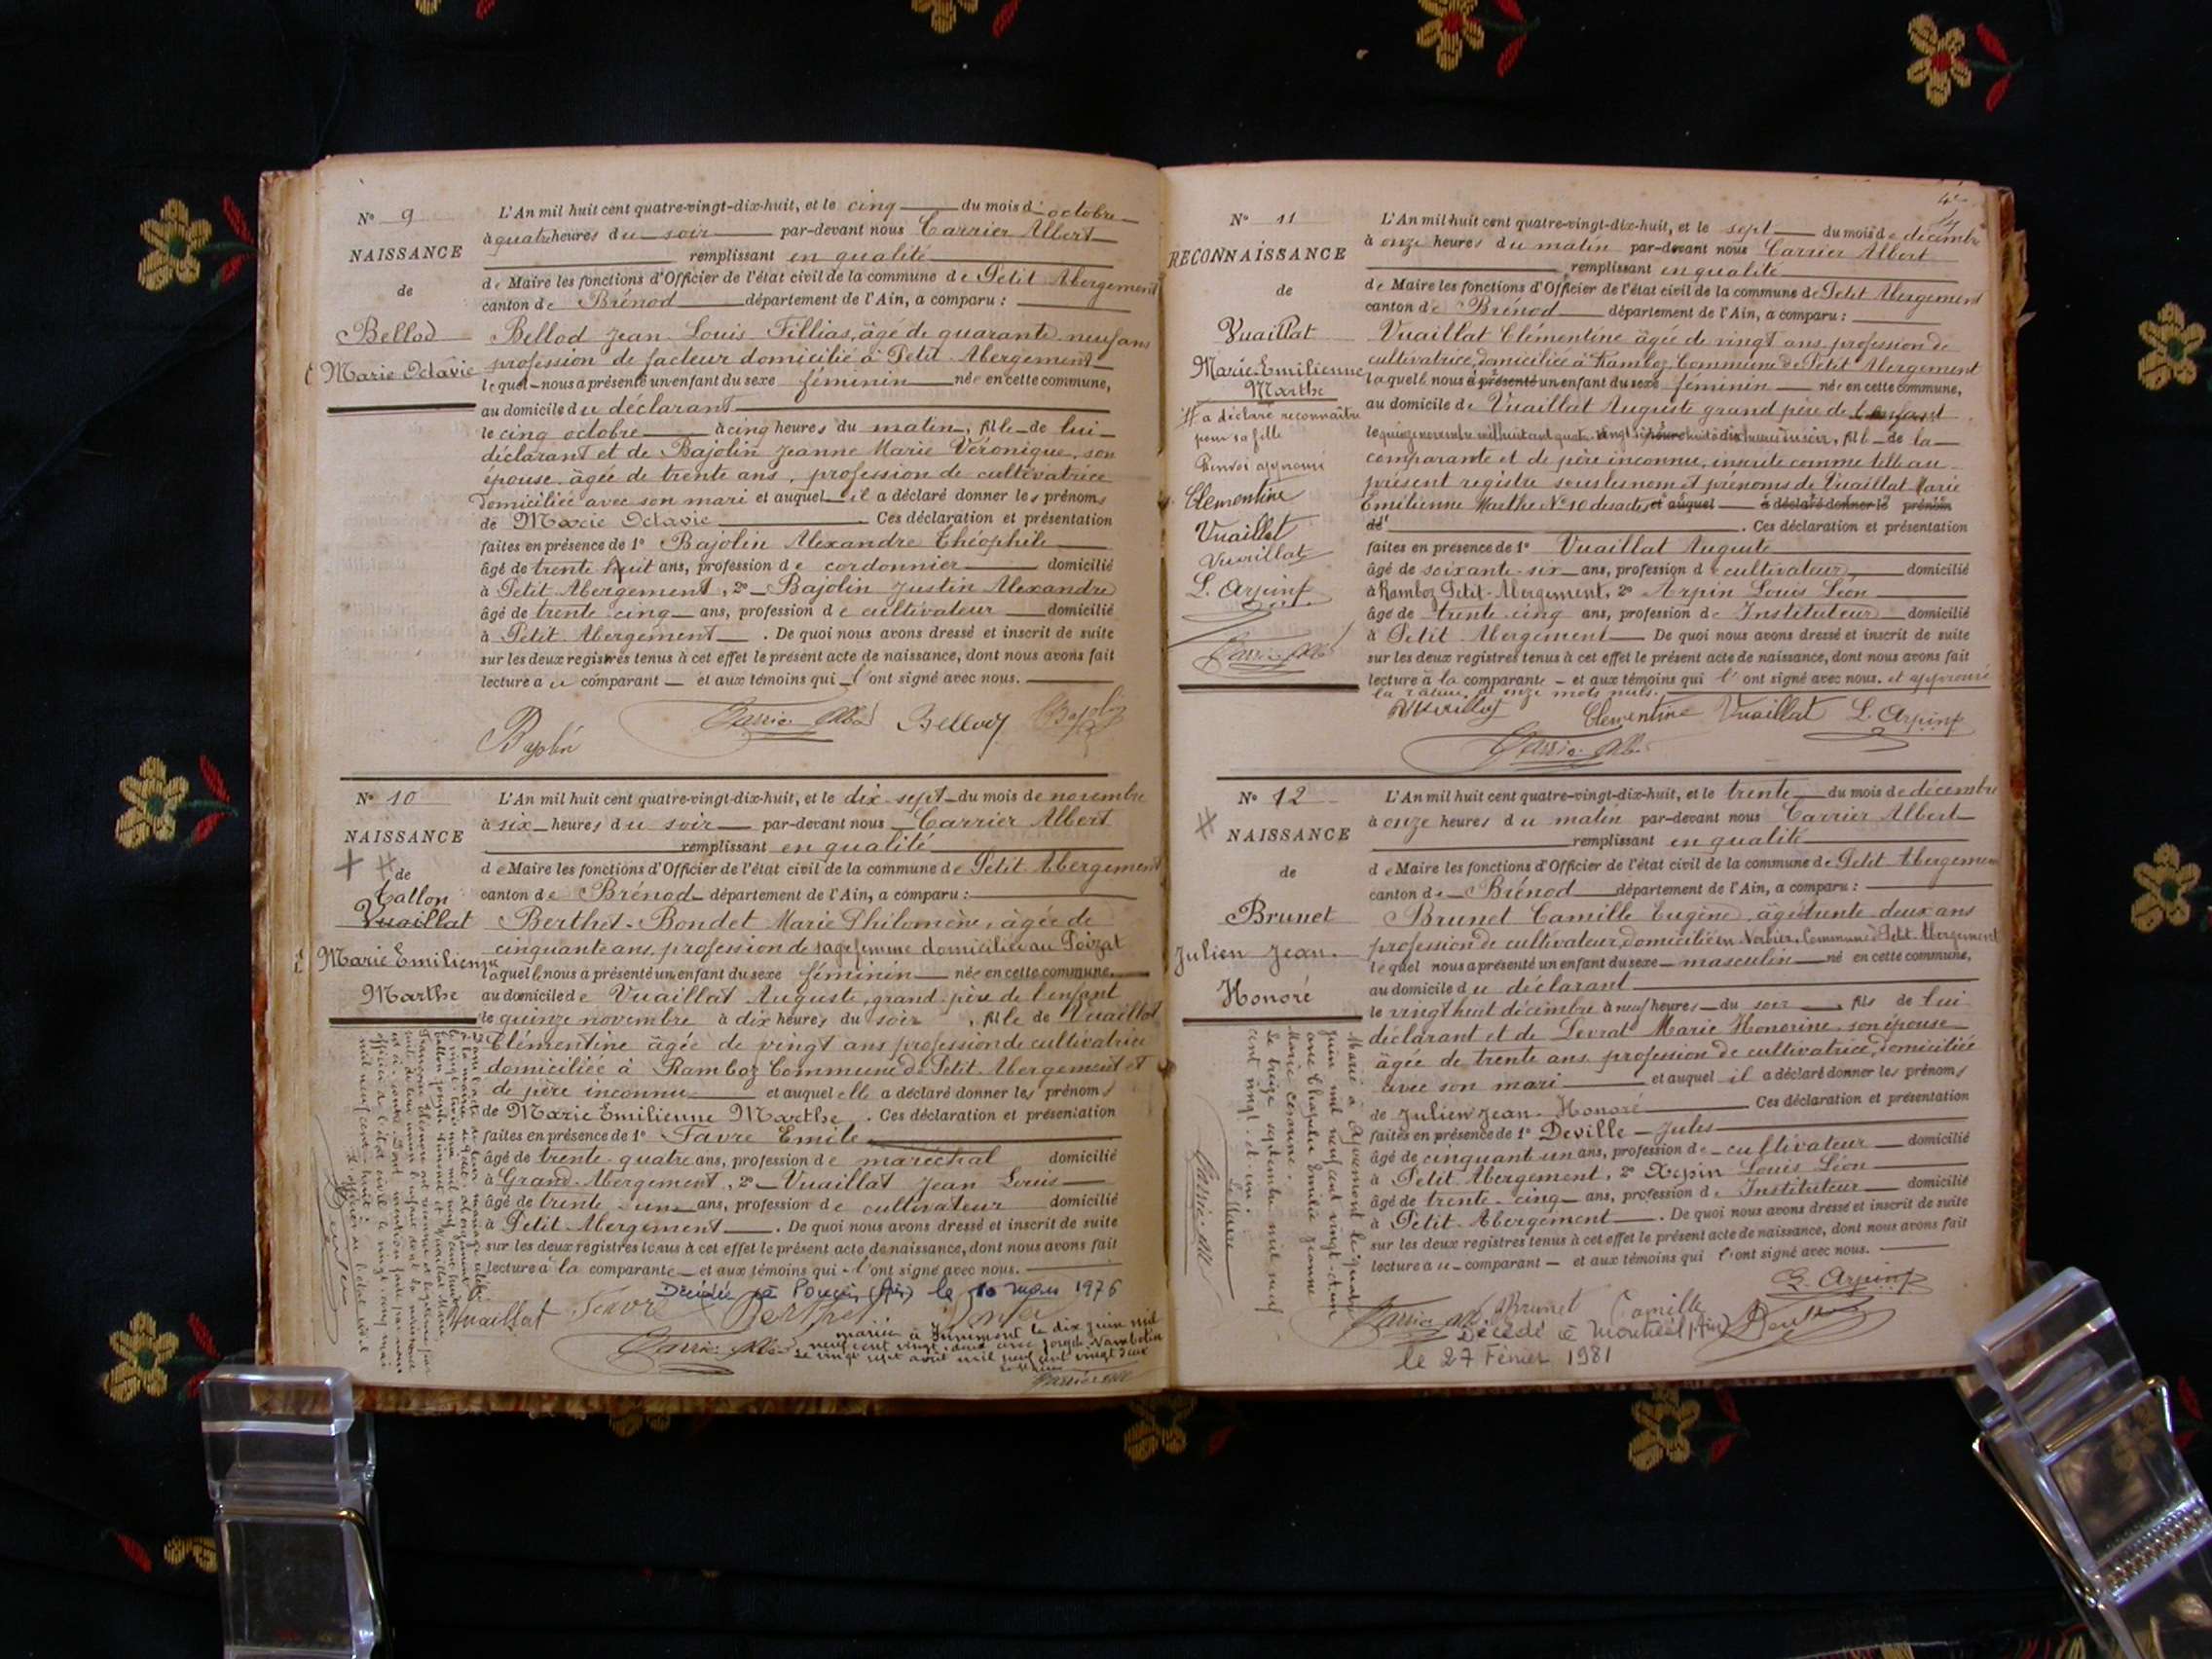 N° 9
NAISSANCE
de
Bellod
Marie Octavie
L'An mil huit cent quatre-vingt-dix-huit, et le cinq du mois d'octobre
à quatre heures du soir par-devant nous Carrier Albert
remplissant en qualité
de Maire les fonctions d'Officier de l'état civil de la commune de Petit Abergement
canton de Brénod département de l'Ain, a comparu :
Bellod Jean Louis Fillias, âgé de quarante neuf ans
profession de facteur domicilié à Petit Abergement
lequel nous a présenté un enfant du sexe féminin née en cette commune,
au domicile du déclarant
le cinq octobre à cinq heures du matin, fille de lui
déclarant et de Bajolin Jeanne Marie Véronique, son
épouse, âgée de trente ans, profession de cultivatrice
domiciliée avec son mari et auquel il a déclaré donner les prénoms
de Marie Octavie Ces déclaration et présentation
faites en présence de 1° Bajolin Alexandre Théophile
âgé de trente huit ans, profession de cordonnier domicilié
à Petit Abergement, 2° Bajolin Justin Alexandre
âgé de trente cinq ans, profession de cultivateur domicilié
à Petit Abergement. De quoi nous avons dressé et inscrit de suite
sur les deux registres tenus à cet effet le présent acte de naissance, dont nous avons fait
lecture au comparant et aux témoins qui l'ont signé avec nous.
Bajolin Bellod
N° 10
NAISSANCE
de
Tallon
Vuaillat
Marie Emilienne
Marthe
L'An mil huit cent quatre-vingt-dix-huit, et le dix-sept du mois de novembre
à six heures du soir par-devant nous Carrier Albert
remplissant en qualité
de Maire les fonctions d'Officier de l'état civil de la commune de Petit Abergement
canton de Brénod département de l'Ain, a comparu :
Berthet-Bondet Marie Philomène, âgée de
cinquante ans, profession de sage femme domiciliée au Poizat
laquelle nous a présenté un enfant du sexe féminin née en cette commune,
au domicile de Vuaillat Auguste, grand-père de l'enfant
le quinze novembre à dix heures du soir, fille de Vuaillat
Clémentine âgée de vingt ans profession de cultivatrice
domiciliée à Ramboz Commune de Petit Abergement et
de père inconnu et auquel elle a déclaré donner les prénoms
de Marie Emilienne Marthe. Ces déclaration et présentation
faites en présence de 1° Favre Emile
âgé de trente-quatre ans, profession de maréchal domicilié
à Grand-Abergement, 2° Vuaillat Jean Louis
âgé de trente un ans, profession de cultivateur domicilié
à Petit Abergement. De quoi nous avons dressé et inscrit de suite
sur les deux registres tenus à cet effet le présent acte de naissance, dont nous avons fait
lecture à la comparante et aux témoins qui l'ont signé avec nous.
Décédée à (Ain) le 10 mars 1976
Vuaillat Favre Berthet
mariée à le dix juin mil
neuf cent vingt deux avec
Le vingt sept août mil neuf cent vingt deux
N° 11
RECONNAISSANCE
de
Vuaillat
Marie-Emilienne
Marthe
a déclaré reconnaître
pour sa fille
Renvoi approuvé
Clementine
Vuaillat
Vuaillat
L. Arpin
L'An mil huit cent quatre-vingt-dix-huit, et le sept du mois de décembre
à onze heures du matin par-devant nous Carrier Albert
remplissant en qualité
de Maire les fonctions d'Officier de l'état civil de la commune de Petit Abergement
canton de Brénod département de l'Ain, a comparu :
Vuaillat Clémentine âgée de vingt ans, profession de
cultivatrice, domiciliée à Ramboz, Commune de Petit Abergement
laquelle nous a présenté un enfant du sexe féminin née en cette commune,
au domicile de Vuaillat Auguste grand père de l'enfant
le quinze novembre mil huit cent quatre-vingt dix huit à dix heures du soir, fille de la
comparante et de père inconnu, inscrite comme telle au
présent registre sous les nom et prénoms de Vuaillat Marie
Emilienne Marthe N° 10 des actes et auquel a déclaré donner le prénom
de . Ces déclaration et présentation
faites en présence de 1° Vuaillat Auguste
âgé de soixante-six ans, profession de cultivateur, domicilié
à Ramboz Petit-Abergement, 2° Arpin Louis Léon
âgé de trente cinq ans, profession de Instituteur domicilié
à Petit Abergement De quoi nous avons dressé et inscrit de suite
sur les deux registres tenus à cet effet le présent acte de naissance, dont nous avons fait
lecture à la comparante et aux témoins qui l'ont signé avec nous. et approuvé
la rature de onze mots nuls.
Vuaillat Clementine Vuaillat L. Arpin
N° 12
NAISSANCE
de
Brunet
Julien Jean
Honoré
L'An mil huit cent quatre-vingt-dix-huit, et le trente du mois de décembre
à onze heures du matin par-devant nous Carrier Albert
remplissant en qualité
de Maire les fonctions d'Officier de l'état civil de la commune de Petit Abergement
canton de Brénod département de l'Ain, a comparu :
Brunet Camille Eugène, âgé trente deux ans
profession de cultivateur, domicilié en Commune de Petit Abergement
lequel nous a présenté un enfant du sexe masculin né en cette commune,
au domicile du déclarant
le vingt huit décembre à neuf heures du soir, fils de lui
déclarant et de Levrat Marie Honorine son épouse
âgée de trente ans, profession de cultivatrice, domiciliée
avec son mari et auquel il a déclaré donner les prénoms
de Julien Jean Honoré Ces déclaration et présentation
faites en présence de 1° Deville Jules
âgé de cinquant un ans, profession de cultivateur domicilié
à Petit Abergement, 2° Arpin Louis Léon
âgé de trente-cinq ans, profession de Instituteur domicilié
à Petit-Abergement. De quoi nous avons dressé et inscrit de suite
sur les deux registres tenus à cet effet le présent acte de naissance, dont nous avons fait
lecture au comparant et aux témoins qui l'ont signé avec nous.
Marié à le quatre
juin mil neuf cent vingt-et-un
avec Chapelu Emilie Jeanne
Le treize septembre mil neuf
cent vingt-et-un
Le Maire
L. Arpin
Brunet Camille
Décédé à Montréal (Ain)
le 27 Février 1981